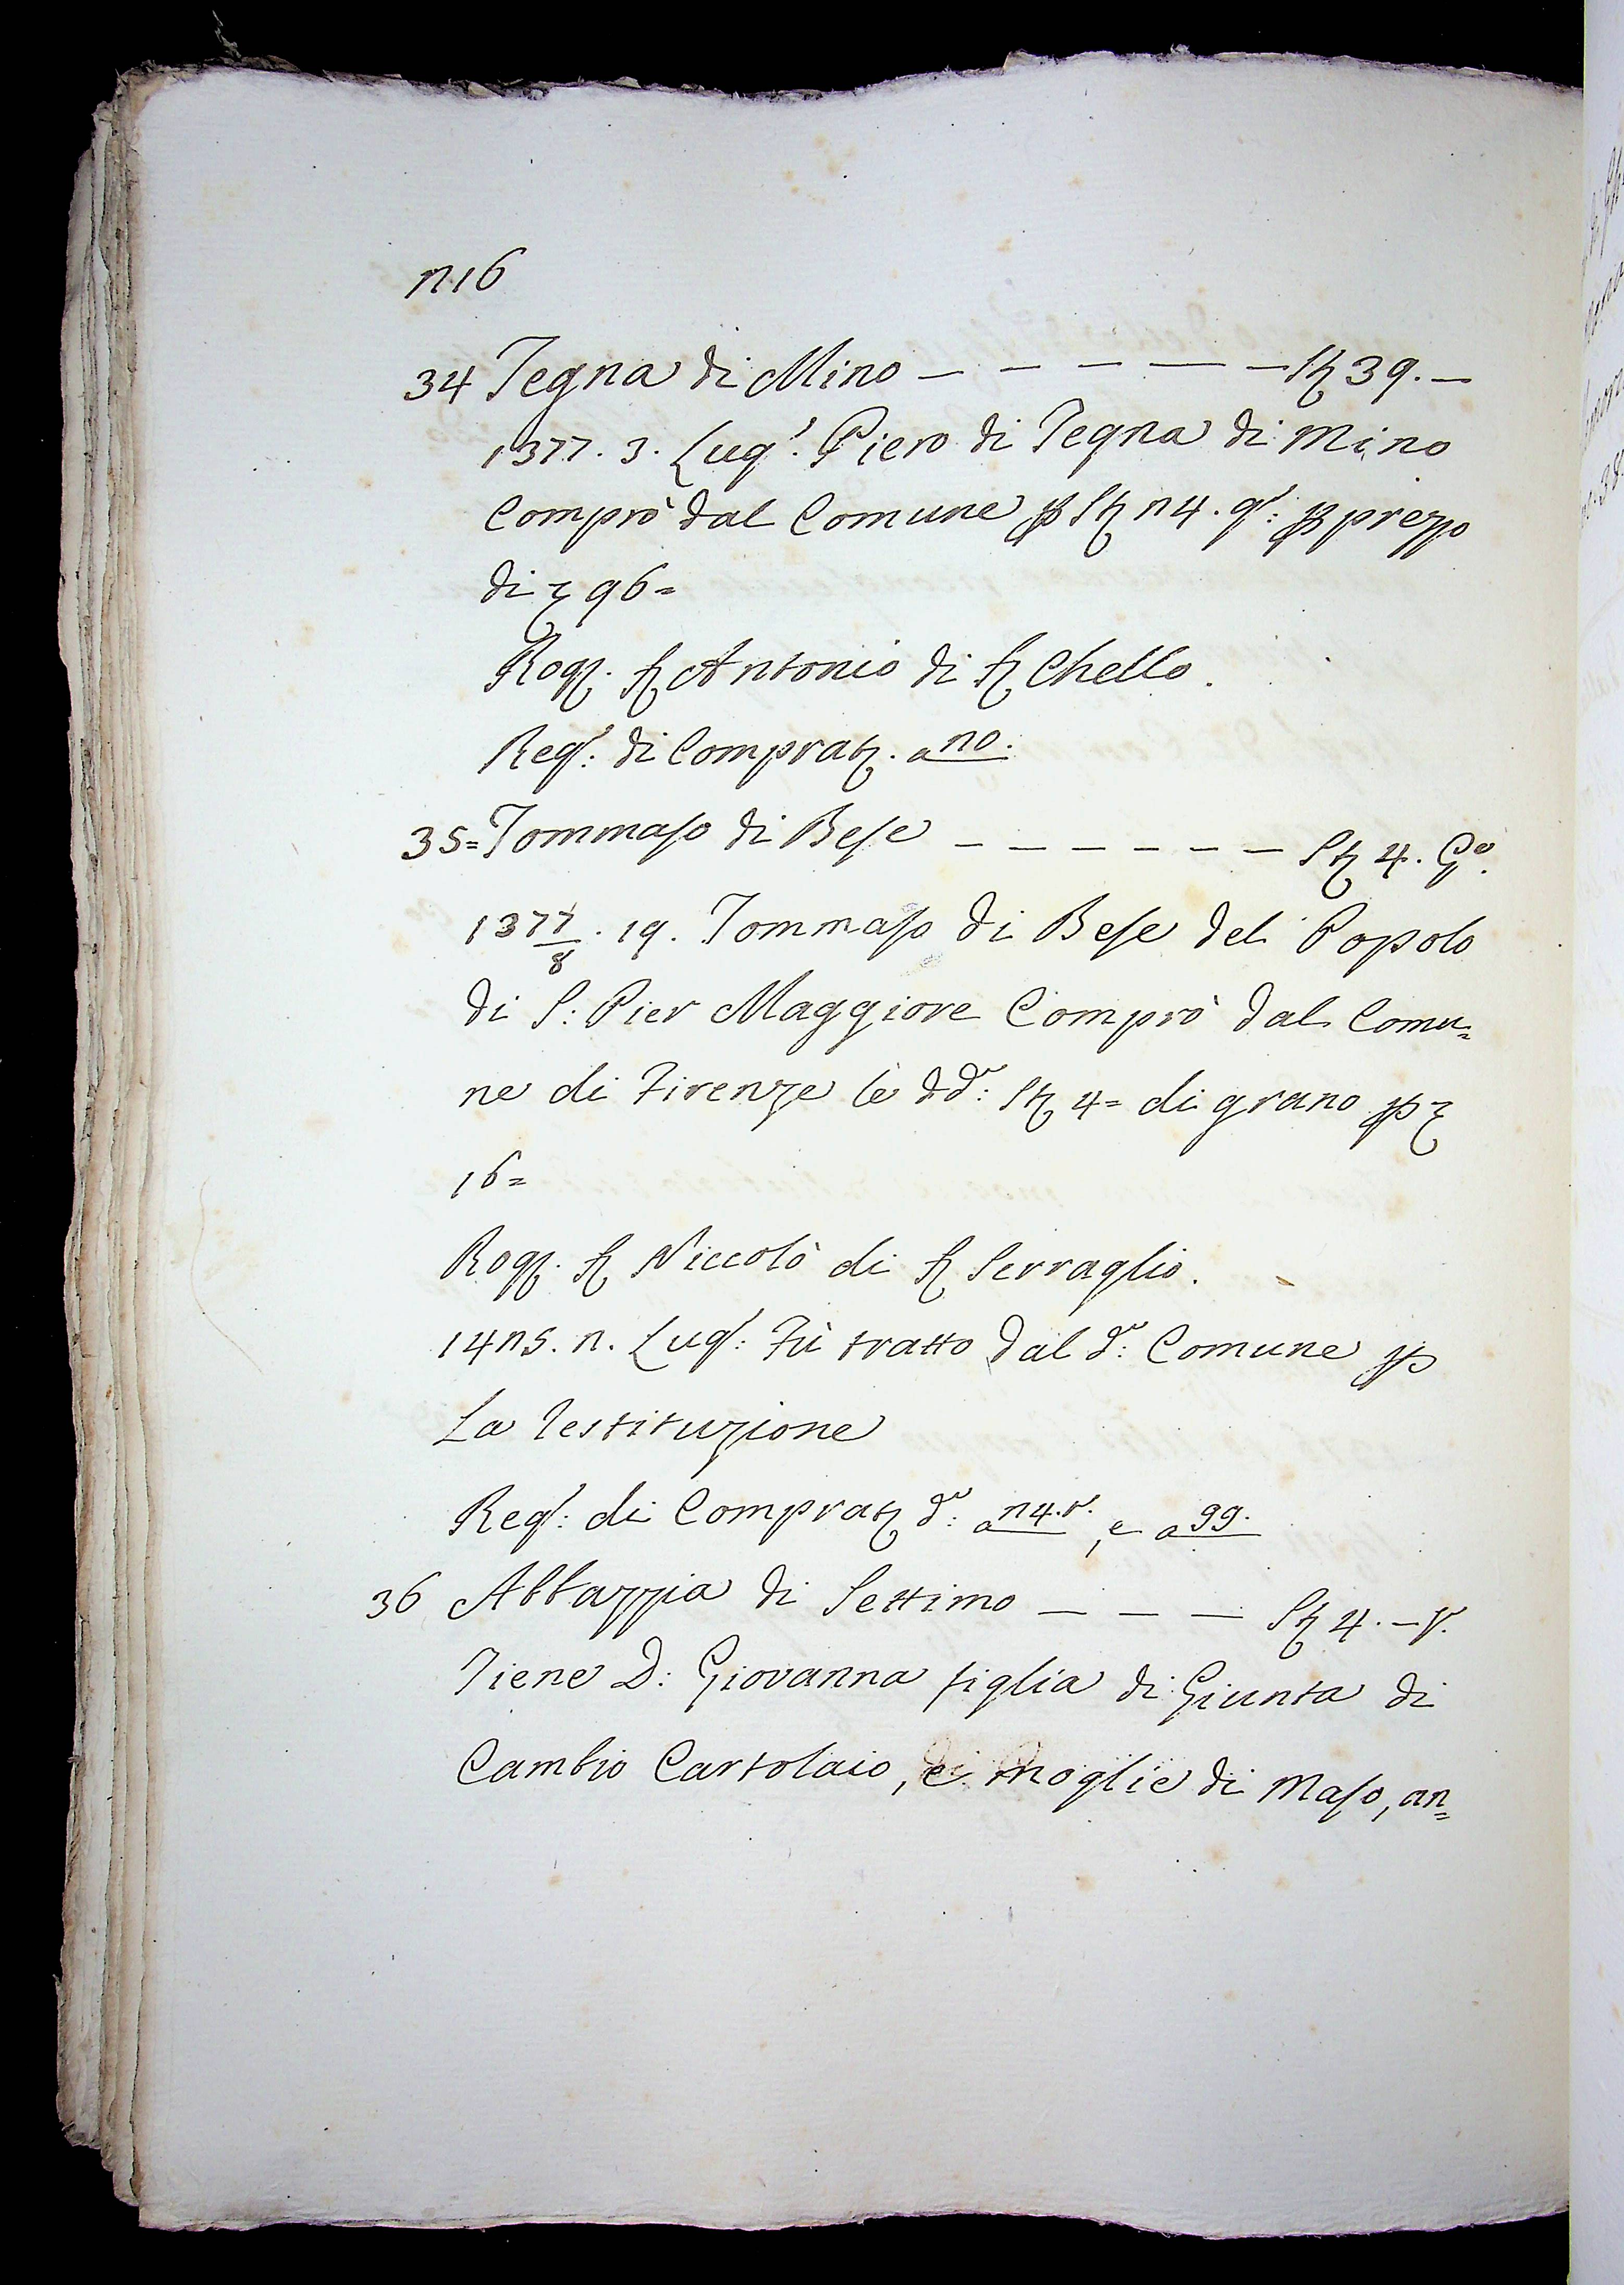 n16
34 Tegna di Mino — — — — — St 39. —
1377. 3. Lug.º Piero di Tegna di Mino
Comprò dal Comune p St n4. q.º: p prezzo
di ʒ 96=
Rog. S Antonio di S Chello.
Reg.º: di Comprat. a n0.
35= Tommaso di Bese — — — — — — St 4. Gº.
1377/8. 19. Tommaso di Bese del Popolo
di S: Pier Maggiore Comprò dal Comu=
ne di Firenze le dd.e: St 4= di grano p ʒ
16=
Rog. S Niccolò di S Serraglio.
14n5. n. Lug.º: Fù tratto dal d.o: Comune p
La restituzione
Reg.º: di Comprat d.o: a n4.t., e a 99.
36 Abbazzia di Settimo — — — St 4. —
Tiene D: Giovanna figlia di Giunta di
Cambio Cartolaio, e moglie di Maso, an=